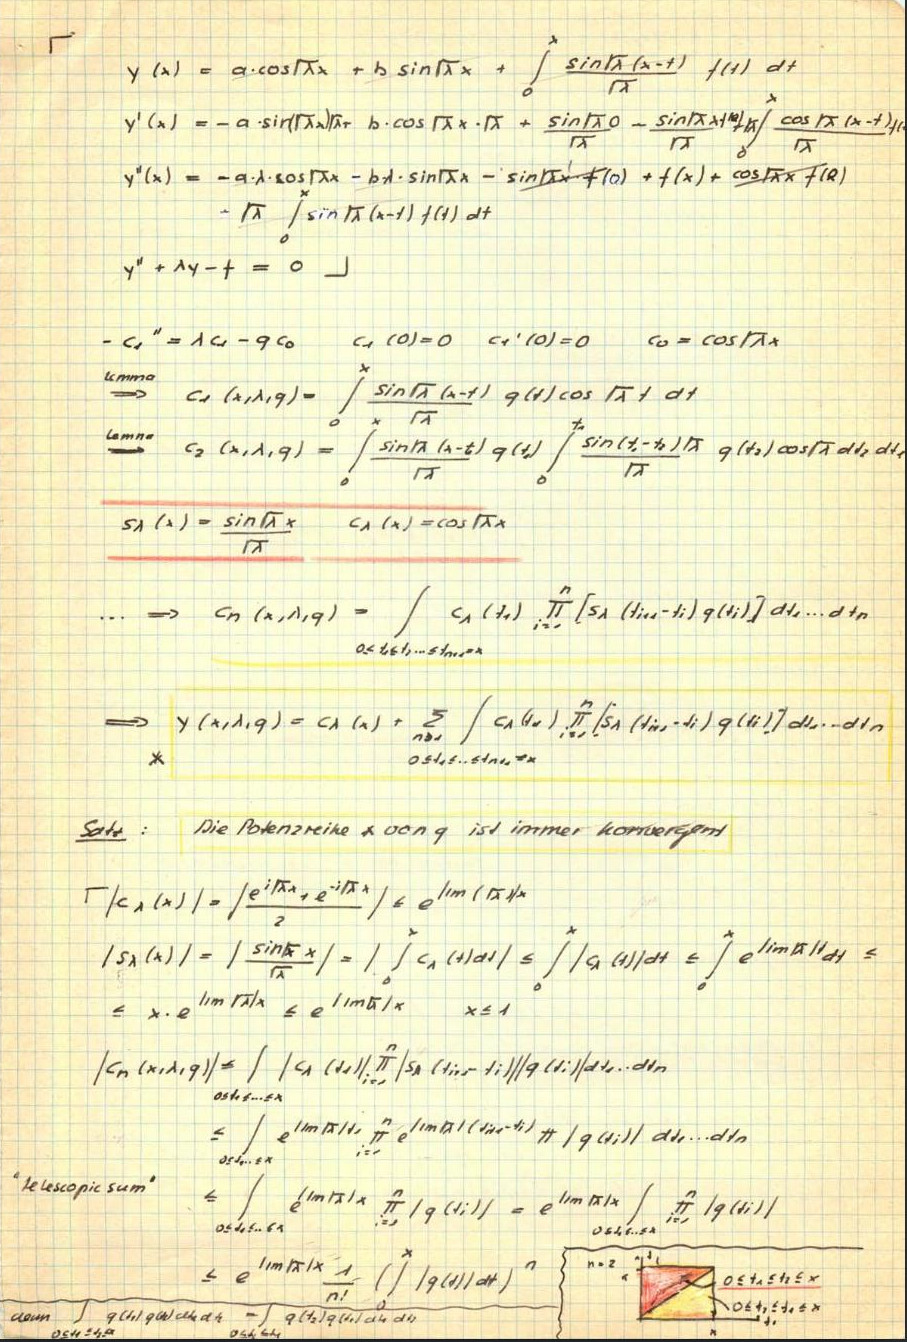 ⌈ y(x) = a·cos√λx + b sin√λx + ∫₀ˣ sin√λ(x-t)/√λ f(t) dt
y'(x) = -a·sin(√λx)√λ + b·cos√λx·√λ + sin√λ0/√λ - sin√λx f(0)/√λ + √λ ∫₀ˣ cos√λ(x-t)/√λ f(
y''(x) = -a·λ·cos√λx - bλ·sin√λx - sin√λx f(0) + f(x) + cos√λx f(0)
- √λ ∫₀ˣ sin√λ(x-t) f(t) dt
y'' + λy - f = 0 ⌋
-c₁'' = λc₁ - qc₀ c₁(0)=0 c₁'(0)=0 c₀ = cos√λx
Lemma ⟹ c₁(x,λ,q) = ∫₀ˣ sin√λ(x-t)/√λ q(t) cos√λt dt
Lemma ⟹ c₂(x,λ,q) = ∫₀ˣ sin√λ(x-t₁)/√λ q(t₁) ∫₀^t₁ sin(t₁-t₂)√λ/√λ q(t₂) cos√λ dt₂ dt₁
s_λ(x) = sin√λx/√λ c_λ(x) = cos√λx
... ⟹ c_n(x,λ,q) = ∫_{0≤t₁≤t₂...≤t_{n+1}=x} c_λ(t₁) ∏_{i=1}^n [s_λ(t_{i+1}-t_i) q(t_i)] dt₁...dt_n
⟹ y(x,λ,q) = c_λ(x) + Σ_{n≥1} ∫_{0≤t₁≤...≤t_{n+1}=x} c_λ(t₁) ∏_{i=1}^n [s_λ(t_{i+1}-t_i) q(t_i)] dt₁...dt_n
*
Satz: Die Potenzreihe * von q ist immer konvergent
⌈ |c_λ(x)| = |(e^{i√λx} + e^{-i√λx})/2| ≤ e^{|im(√λ)|x}
|s_λ(x)| = |sin√λx/√λ| = |∫₀ˣ c_λ(t)dt| ≤ ∫₀ˣ |c_λ(t)|dt ≤ ∫₀ˣ e^{|im√λ|t} dt ≤
≤ x·e^{|im√λ|x} ≤ e^{|im√λ|x} x≤1
|c_n(x,λ,q)| ≤ ∫_{0≤t₁≤...≤x} |c_λ(t₁)| ∏_{i=1}^n |s_λ(t_{i+1}-t_i)||q(t_i)| dt₁...dt_n
≤ ∫_{0≤t₁...≤x} e^{|im√λ|t₁} ∏_{i=1}^n e^{|im√λ|(t_{i+1}-t_i)} π |q(t_i)| dt₁...dt_n
"telescopic sum" ≤ ∫_{0≤t₁≤...≤x} e^{|im√λ|x} ∏_{i=1}^n |q(t_i)| = e^{|im√λ|x} ∫_{0≤t₁≤...≤x} ∏_{i=1}^n |q(t_i)|
≤ e^{|im√λ|x} 1/n! (∫₀ˣ |q(t)|dt)^n
n=2 0≤t₁≤t₂≤x
0≤t₂≤t₁≤x
x t₁
denn ∫ q(t₁) q(t₂) dt₁ dt₂ = ∫ q(t₂) q(t₁) dt₁ dt₂